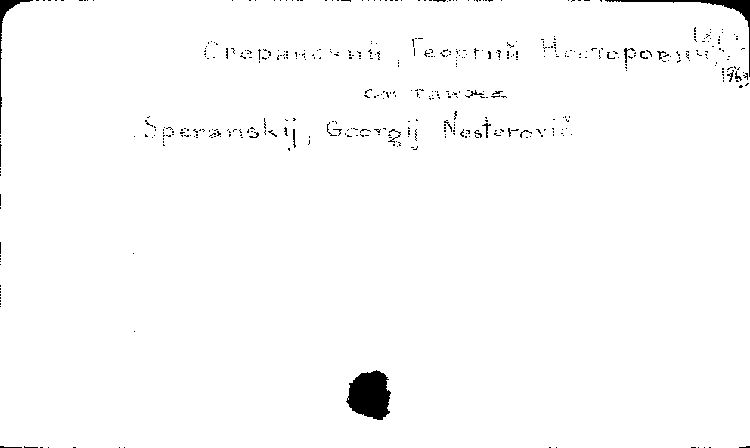 Сперанский, Георгий Несторович,
1969
см также
Speranskij, Georgij Nesterovič